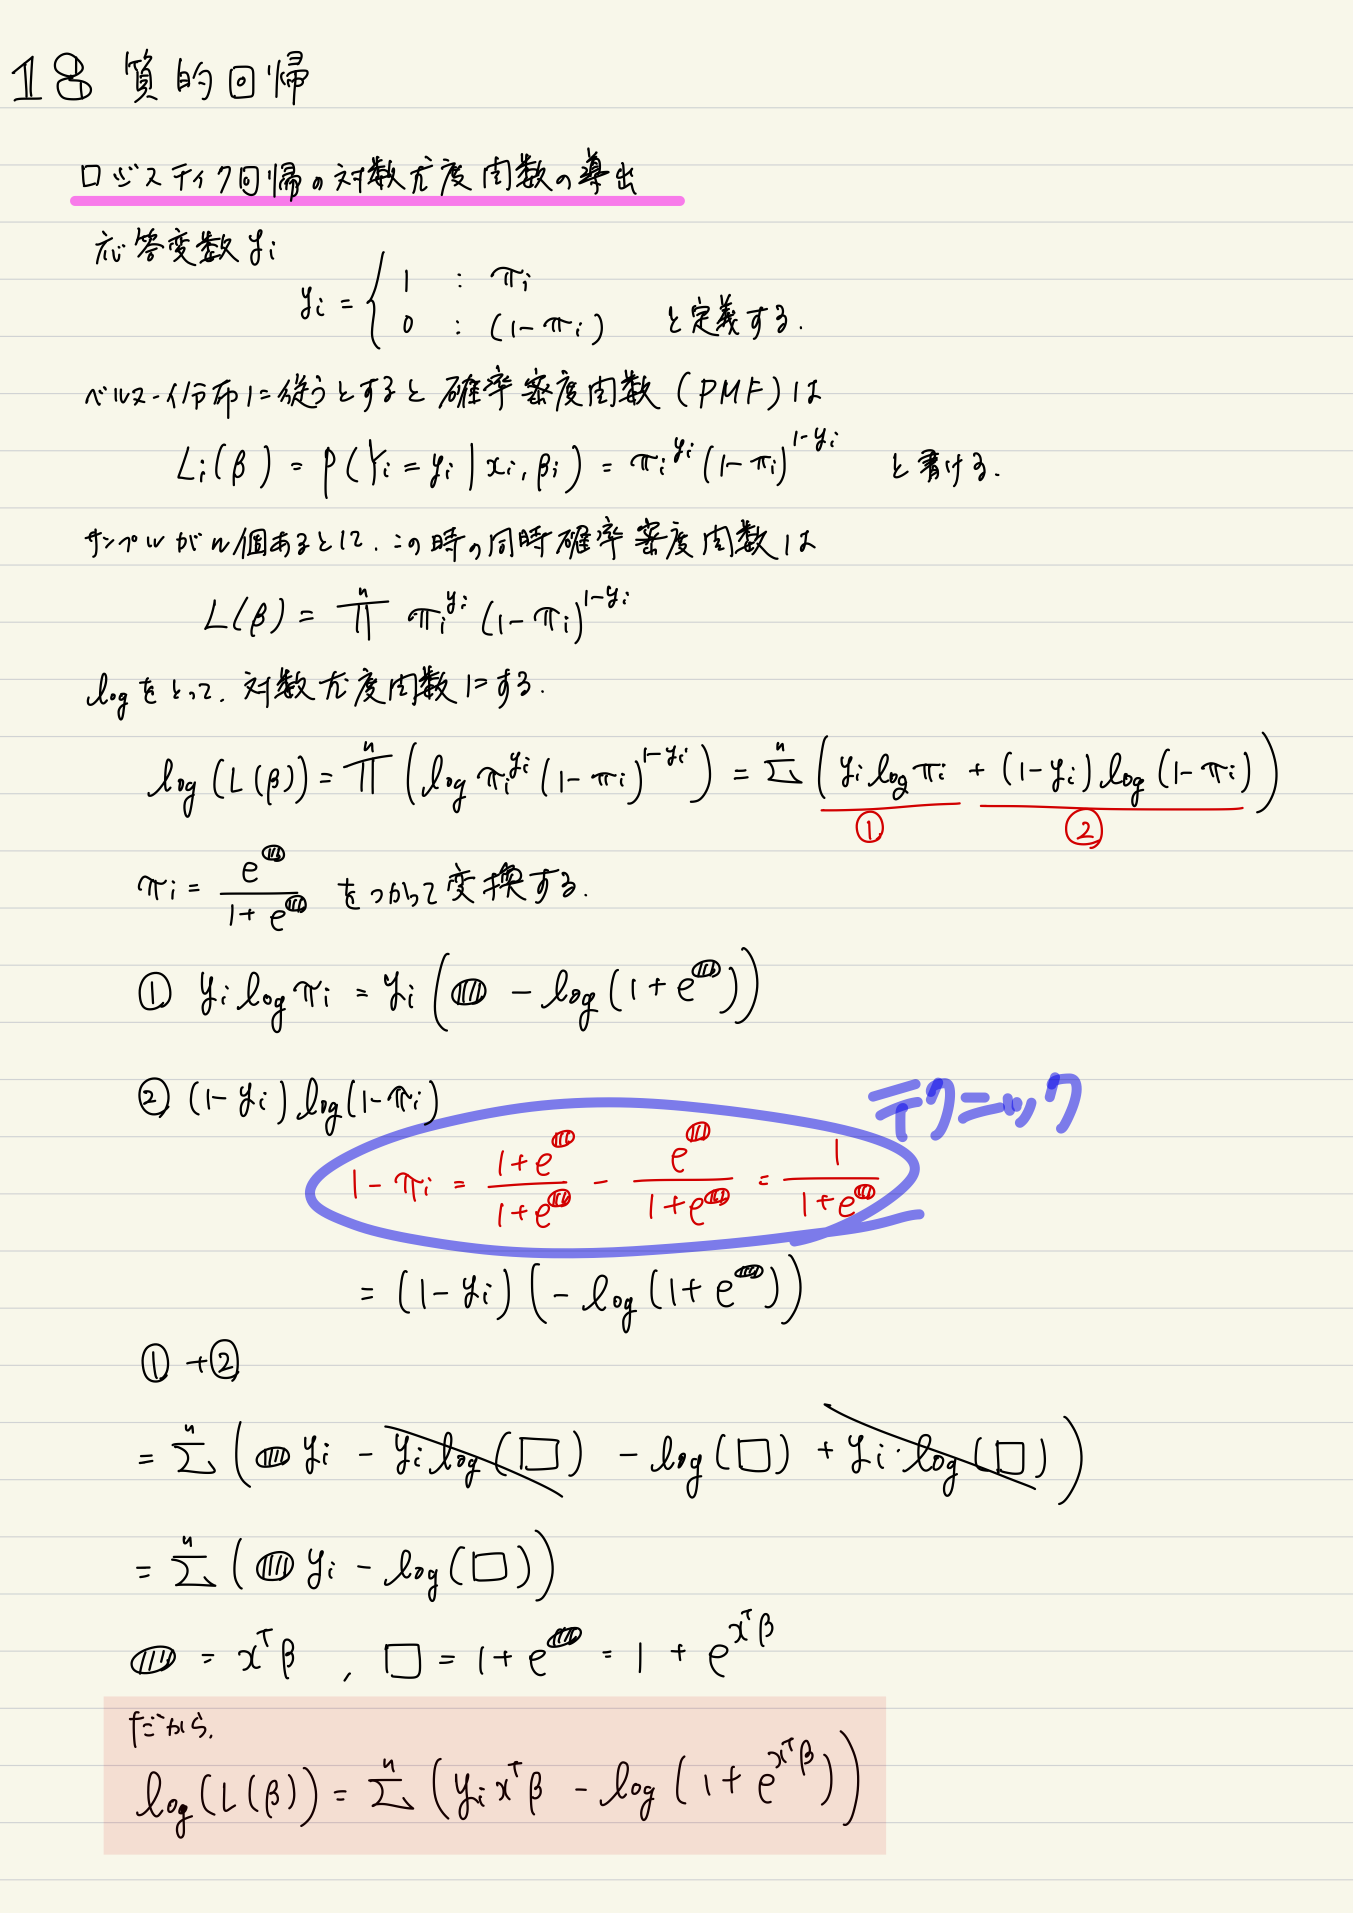 18 質的回帰
ロジスティク回帰の対数尤度関数の導出
応答変数 yi
yi = { 1 : πi
0 : (1-πi) と定義する.
ベルヌーイ分布に従うとすると 確率密度関数 (PMF)は
Li(β) = P(Yi = yi | xi, βi) = πi^yi (1-πi)^1-yi と書ける.
サンプルがn個あるとに. この時の同時確率密度関数は
L(β) = Π^n πi^yi (1-πi)^1-yi
logをとって. 対数尤度関数にする.
log(L(β)) = Π^n (log πi^yi (1-πi)^1-yi) = Σ^n (yi log πi + (1-yi) log(1-πi))
① ②
πi = e^● / 1+e^● をつかって変換する.
① yi log πi = yi (● - log(1+e^●))
② (1-yi) log(1-πi)
テクニック
1-πi = 1+e^● / 1+e^● - e^● / 1+e^● = 1 / 1+e^●
= (1-yi)(-log(1+e^●))
①+②
= Σ^n (● yi - yi log(□) - log(□) + yi・log(□))
= Σ^n (● yi - log(□))
● = x^Tβ , □ = 1+e^● = 1+e^x^Tβ
だから,
log(L(β)) = Σ^n (yi x^Tβ - log(1+e^xi^Tβ))